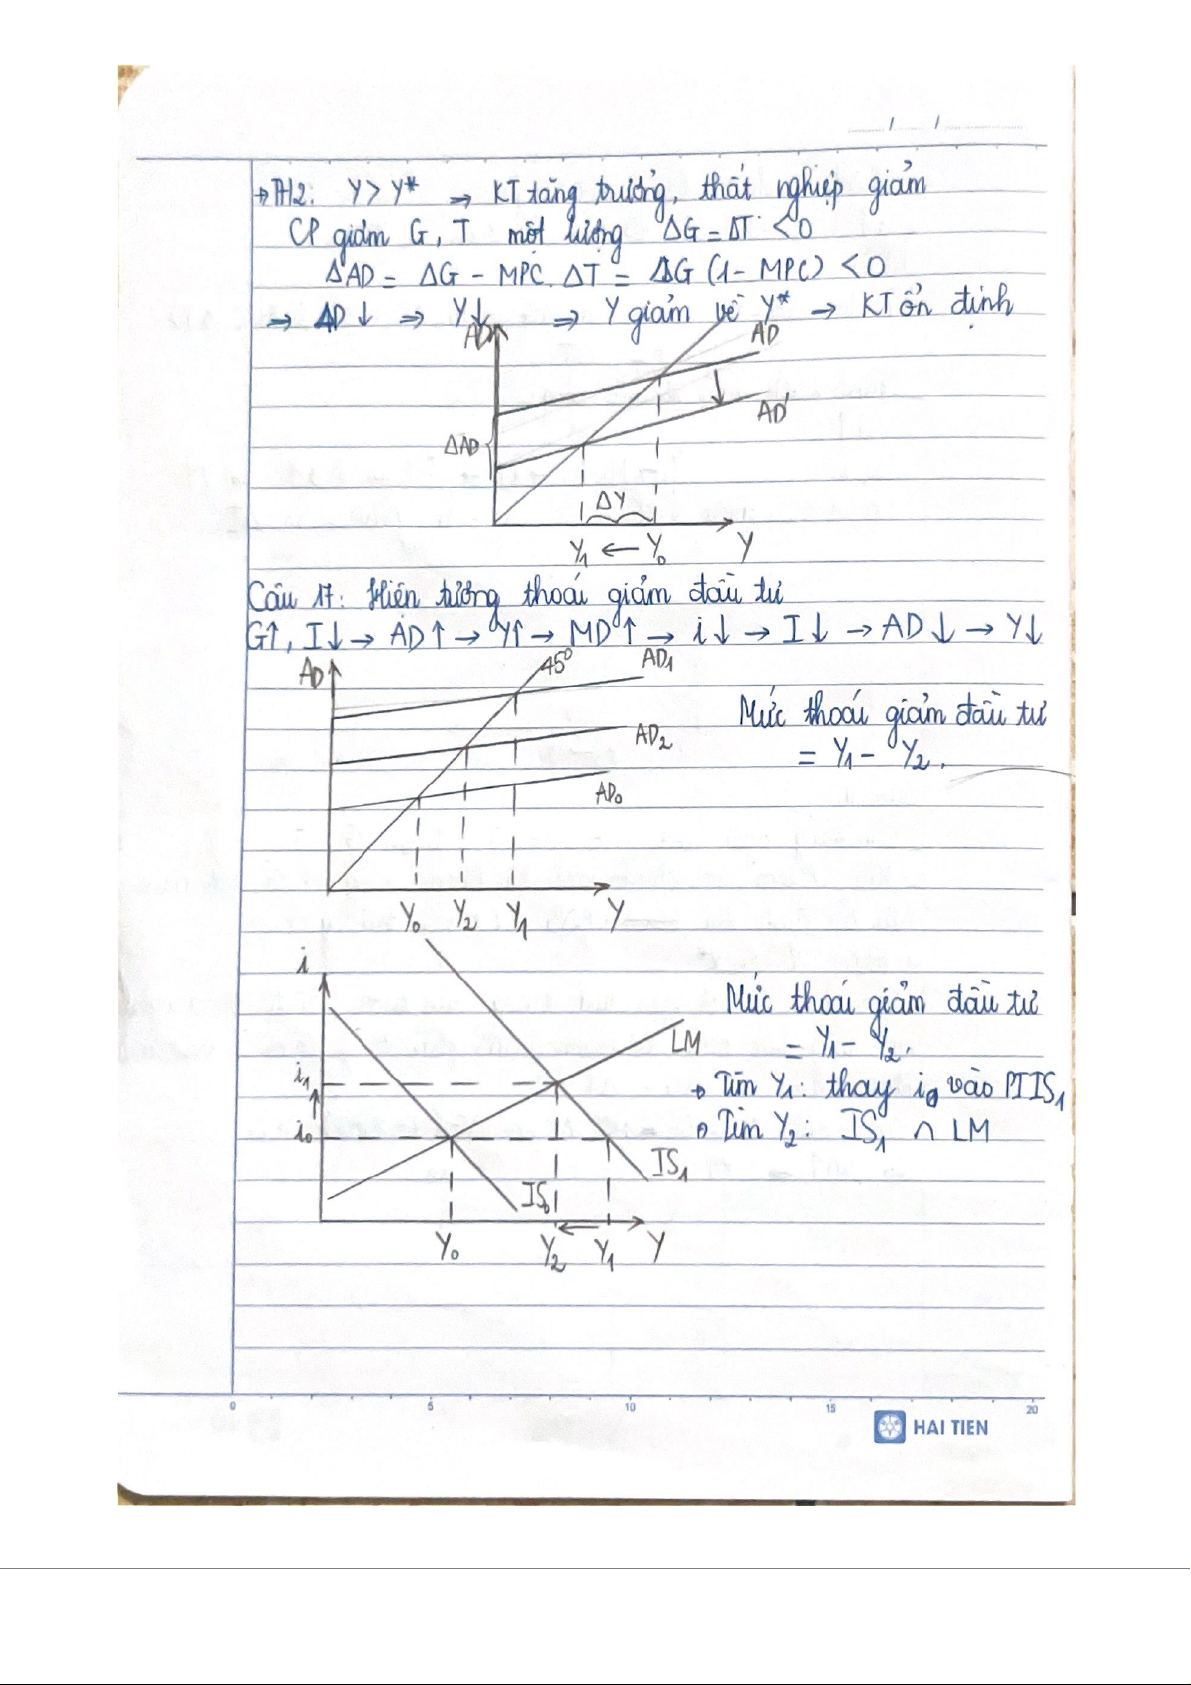 / /
→ TH2: Y > Y* ⇒ KT tăng trưởng, thất nghiệp giảm
CP giảm G, T một lượng ΔG = ΔT < 0
ΔAD = ΔG - MPC. ΔT = ΔG (1 - MPC) < 0
⇒ AD ↓ ⇒ Y↓ ⇒ Y giảm về Y* → KT ổn định
AD
AD
AD'
ΔAD
ΔY
Y₁ ← Y₀ Y
Câu 17: Hiện tượng thoái giảm đầu tư
G↑, I↓ → AD↑ → Y↑ → MD↑ → i↓ → I↓ → AD↓ → Y↓
AD 45⁰ AD₁
Mức thoái giảm đầu tư
AD₂
= Y₁ - Y₂.
AD₀
Y₀ Y₂ Y₁ Y
i
Mức thoái giảm đầu tư
LM = Y₁ - Y₂.
i₁ → Tìm Y₁: thay i₀ vào PTIS₁
i₀ → Tìm Y₂: IS₁ ∩ LM
IS₁
IS₀
Y₀ Y₂ Y₁ Y
0 5 10 15 20
HAI TIEN